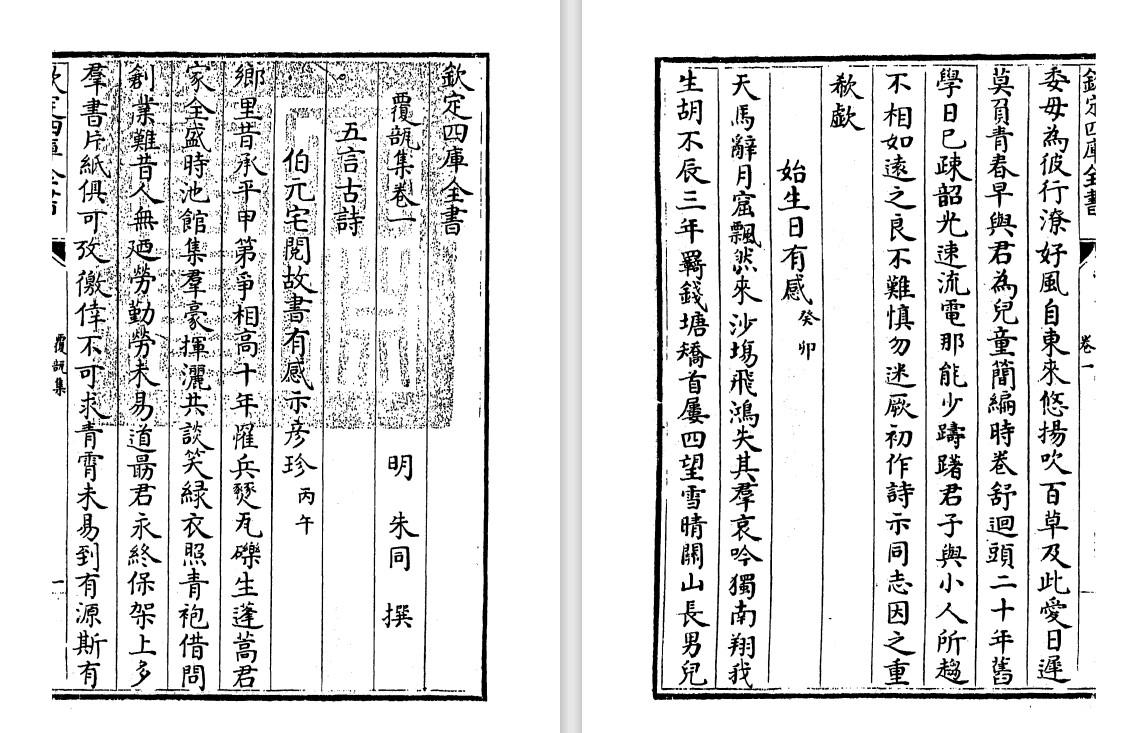 欽定四庫全書
覆瓿集卷一 明 朱同 撰
五言古詩
伯元宅閱故書有感示彦珍 丙午
鄉里昔承平甲第爭相高十年罹兵燹瓦礫生蓬蒿君
家全盛時池館集羣豪揮灑共談笑緑衣照青袍借問
創業難昔人無廼勞勤勞未易道朂君永終保架上多
羣書片紙俱可攷儌倖不可求青霄未易到有源斯有
欽定四庫全書 覆瓿集 一
欽定四庫全書 卷一
委毋為彼行潦好風自東來悠揚吹百草及此愛日遲
莫負青春早與君為兒童簡編時卷舒迴頭二十年舊
學日已疎韶光速流電那能少躊躇君子與小人所趨
不相如遠之良不難慎勿迷厥初作詩示同志因之重
欷歔
始生日有感 癸卯
天馬辭月窟飄然來沙塲飛鴻失其羣哀吟獨南翔我
生胡不辰三年羇錢塘矯首屢四望雪晴關山長男兒